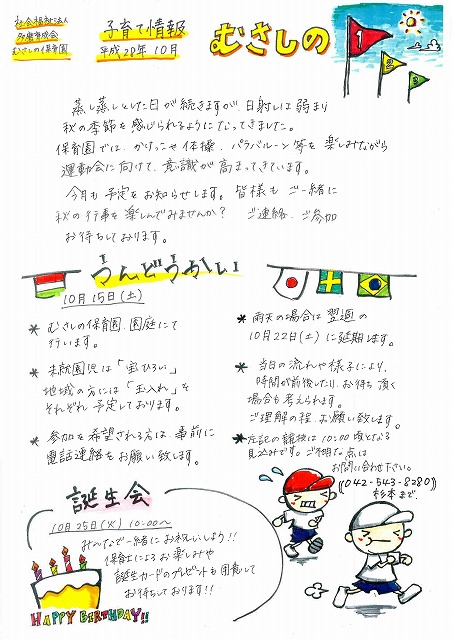 社会福祉法人
多摩育成会
むさしの保育園
子育て情報
平成29年10月
むさしの
1
2
3
蒸し蒸しとした日が続きますが、日射しは弱まり
秋の季節を感じられるようになってきました。
保育園では、かけっこや体操、パラバルーン等を楽しみながら
運動会に向けて、意識が高まってきています。
今月も予定をお知らせします。皆様もご一緒に
秋の行事を楽しんでみませんか？ ご連絡、ご参加
お待ちしております。
うんどうかい
10月15日(土)
* むさしの保育園、園庭にて
行います。
* 未就園児は「宝ひろい」
地域の方には「玉入れ」を
それぞれ予定しております。
* 参加を希望される方は、事前に
電話連絡をお願い致します。
* 雨天の場合は翌週の
10月22日(土)に延期します。
* 当日の流れや様子により、
時間が前後したり、お待ち頂く
場合も考えられます。
ご理解の程、お願い致します。
* 左記の競技は10:00頃となる
見込みです。ご不明な点は
お問い合わせ下さい。
((042-543-8280))
杉本まで。
誕生会
10月25日(火) 10:00〜
みんなで一緒にお祝いしよう!!
保育士によるお楽しみや
誕生カードのプレゼントも用意して
お待ちしております!!
HAPPY BIRTHDAY!!